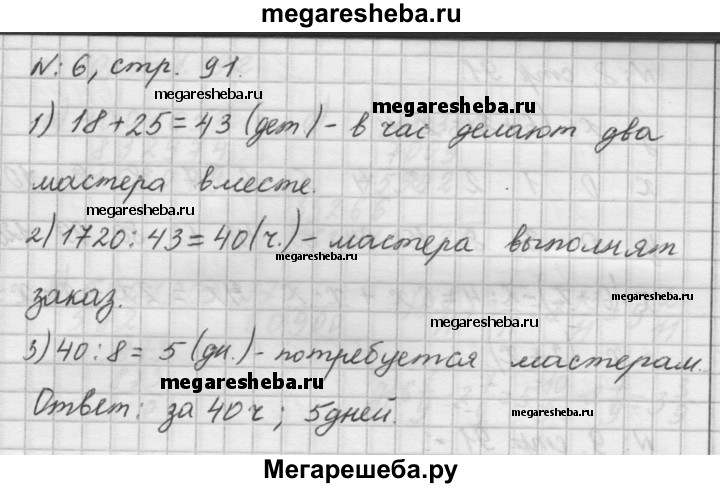 megaresheba.ru
N: 6, стр. 91.
megaresheba.ru
megaresheba.ru
1) 18+25=43 (дет.) - в час делают два
мастера вместе.
megaresheba.ru
2) 1720:43=40(ч.) - мастера выполнят
megaresheba.ru
заказ.
megaresheba.ru
3) 40:8= 5 (дн.) - потребуется мастерам.
megaresheba.ru
Ответ: за 40ч; 5дней.
megaresheba.ru
Мегарешеба.ру